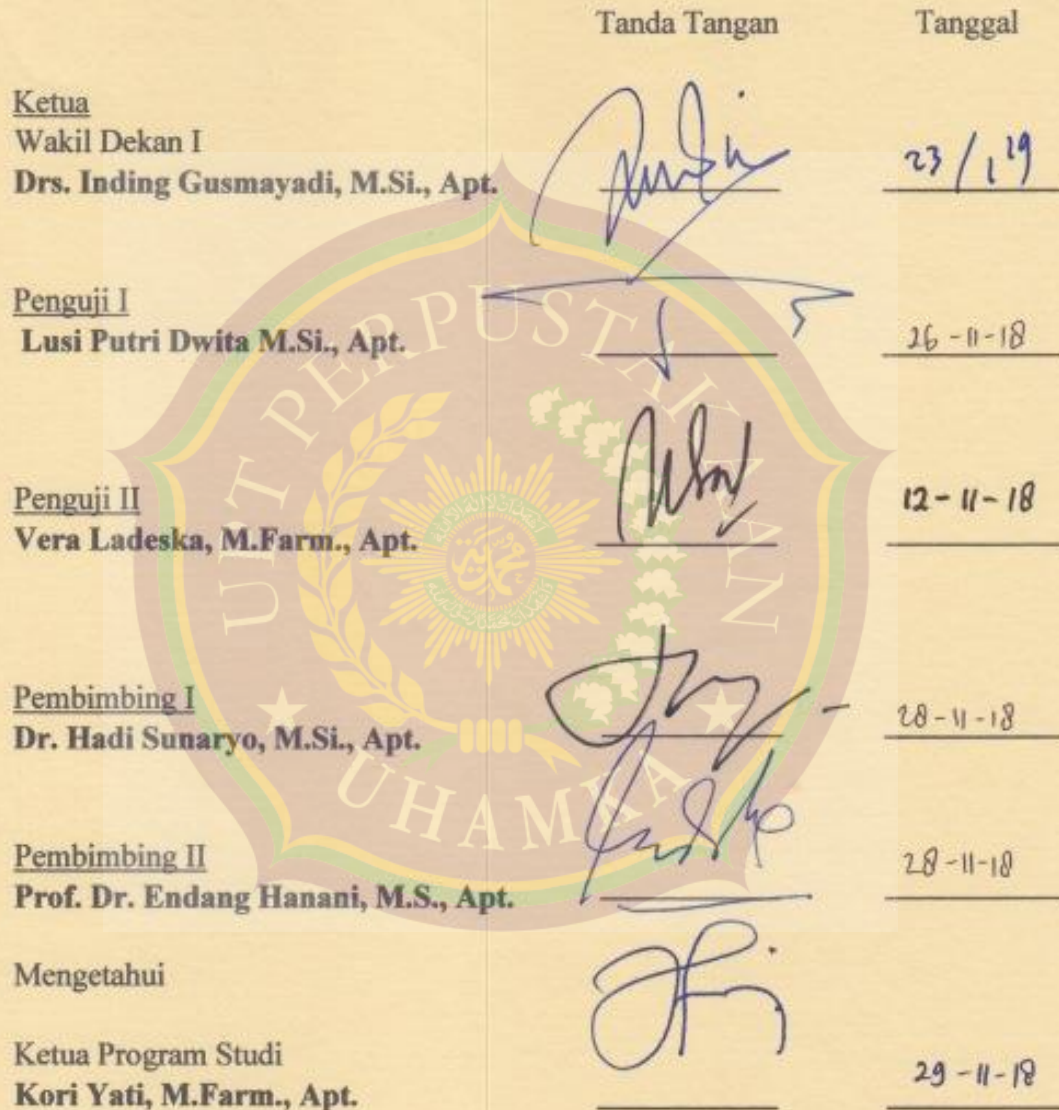 Tanda Tangan Tanggal
Ketua
Wakil Dekan I
Drs. Inding Gusmayadi, M.Si., Apt.
23/1 19
Penguji I
Lusi Putri Dwita M.Si., Apt.
26-11-18
Penguji II
Vera Ladeska, M.Farm., Apt.
12-11-18
Pembimbing I
Dr. Hadi Sunaryo, M.Si., Apt.
28-11-18
Pembimbing II
Prof. Dr. Endang Hanani, M.S., Apt.
28-11-18
Mengetahui
Ketua Program Studi
Kori Yati, M.Farm., Apt.
29-11-18
UPT PERPUSTAKAAN
UHAMKA